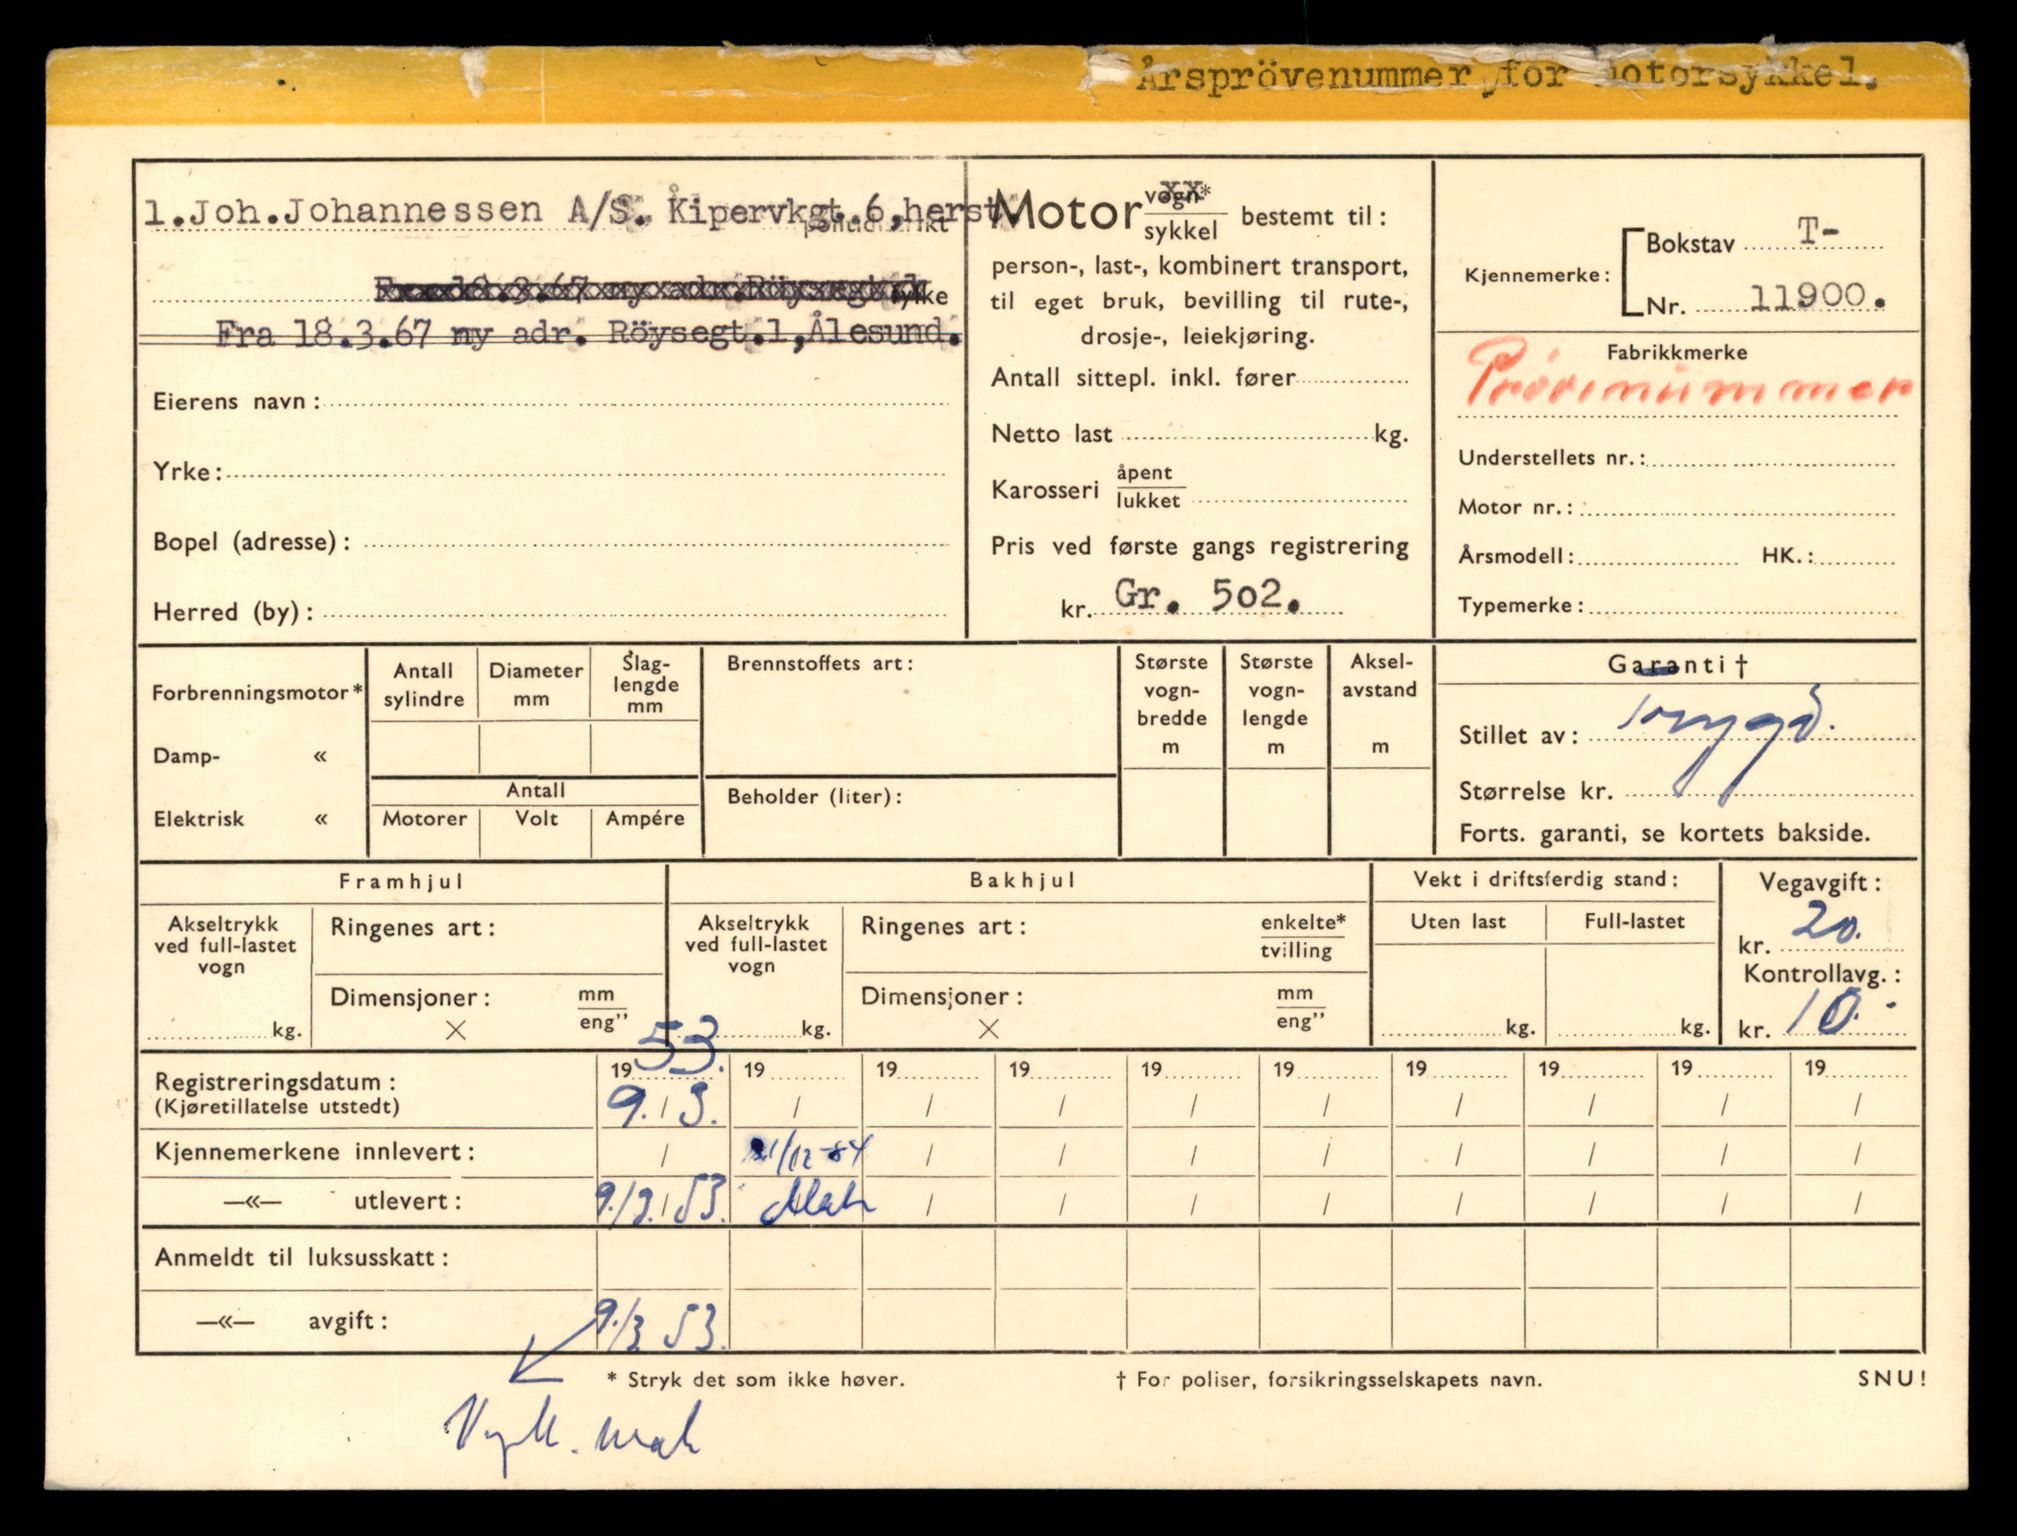 Årsprövenummer for motorsykkel.
1.Joh.Johannessen A/S. Kipervkgt.6,herst.
politidistrikt
Fra 18.3.67 ny adr. Röysegt.1
fylke
Fra 18.3.67 ny adr. Röysegt.1,Ålesund.
Eierens navn:
Yrke:
Bopel (adresse):
Herred (by):
Motor vogn*
sykkel bestemt til:
person-, last-, kombinert transport,
til eget bruk, bevilling til rute-,
drosje-, leiekjøring.
Antall sittepl. inkl. fører
Netto last kg.
Karosseri åpent
lukket
Pris ved første gangs registrering
kr. Gr. 502.
Kjennemerke: Bokstav T-
Nr. 11900.
Fabrikkmerke
Prövenummer
Understellets nr.:
Motor nr.:
Årsmodell: HK.:
Typemerke:
Forbrenningsmotor*
Damp- «
Elektrisk «
Antall sylindre
Diameter mm
Slag-lengde mm
Antall
Motorer Volt Ampére
Brennstoffets art:
Beholder (liter):
Største vogn-bredde m
Største vogn-lengde m
Aksel-avstand m
Garanti †
Stillet av: Trygd.
Størrelse kr.
Forts. garanti, se kortets bakside.
Framhjul
Akseltrykk ved full-lastet vogn
kg.
Ringenes art:
Dimensjoner: mm
× eng"
Bakhjul
Akseltrykk ved full-lastet vogn
kg.
Ringenes art: enkelte*
tvilling
Dimensjoner: mm
× eng"
Vekt i driftsferdig stand:
Uten last Full-lastet
kg. kg.
Vegavgift:
kr. 20.
Kontrollavg.:
kr. 10.-
1953. 19 19 19 19 19 19 19 19 19
Registreringsdatum:
(Kjøretillatelse utstedt) 9./3. / / / / / / / / /
Kjennemerkene innlevert: / 21/12-84 / / / / / / / /
—«— utlevert: 9./3. 53. / / / / / / / /
Anmeldt til luksusskatt:
—«— avgift: 9./3 53.
* Stryk det som ikke høver.
† For poliser, forsikringsselskapets navn.
SNU!